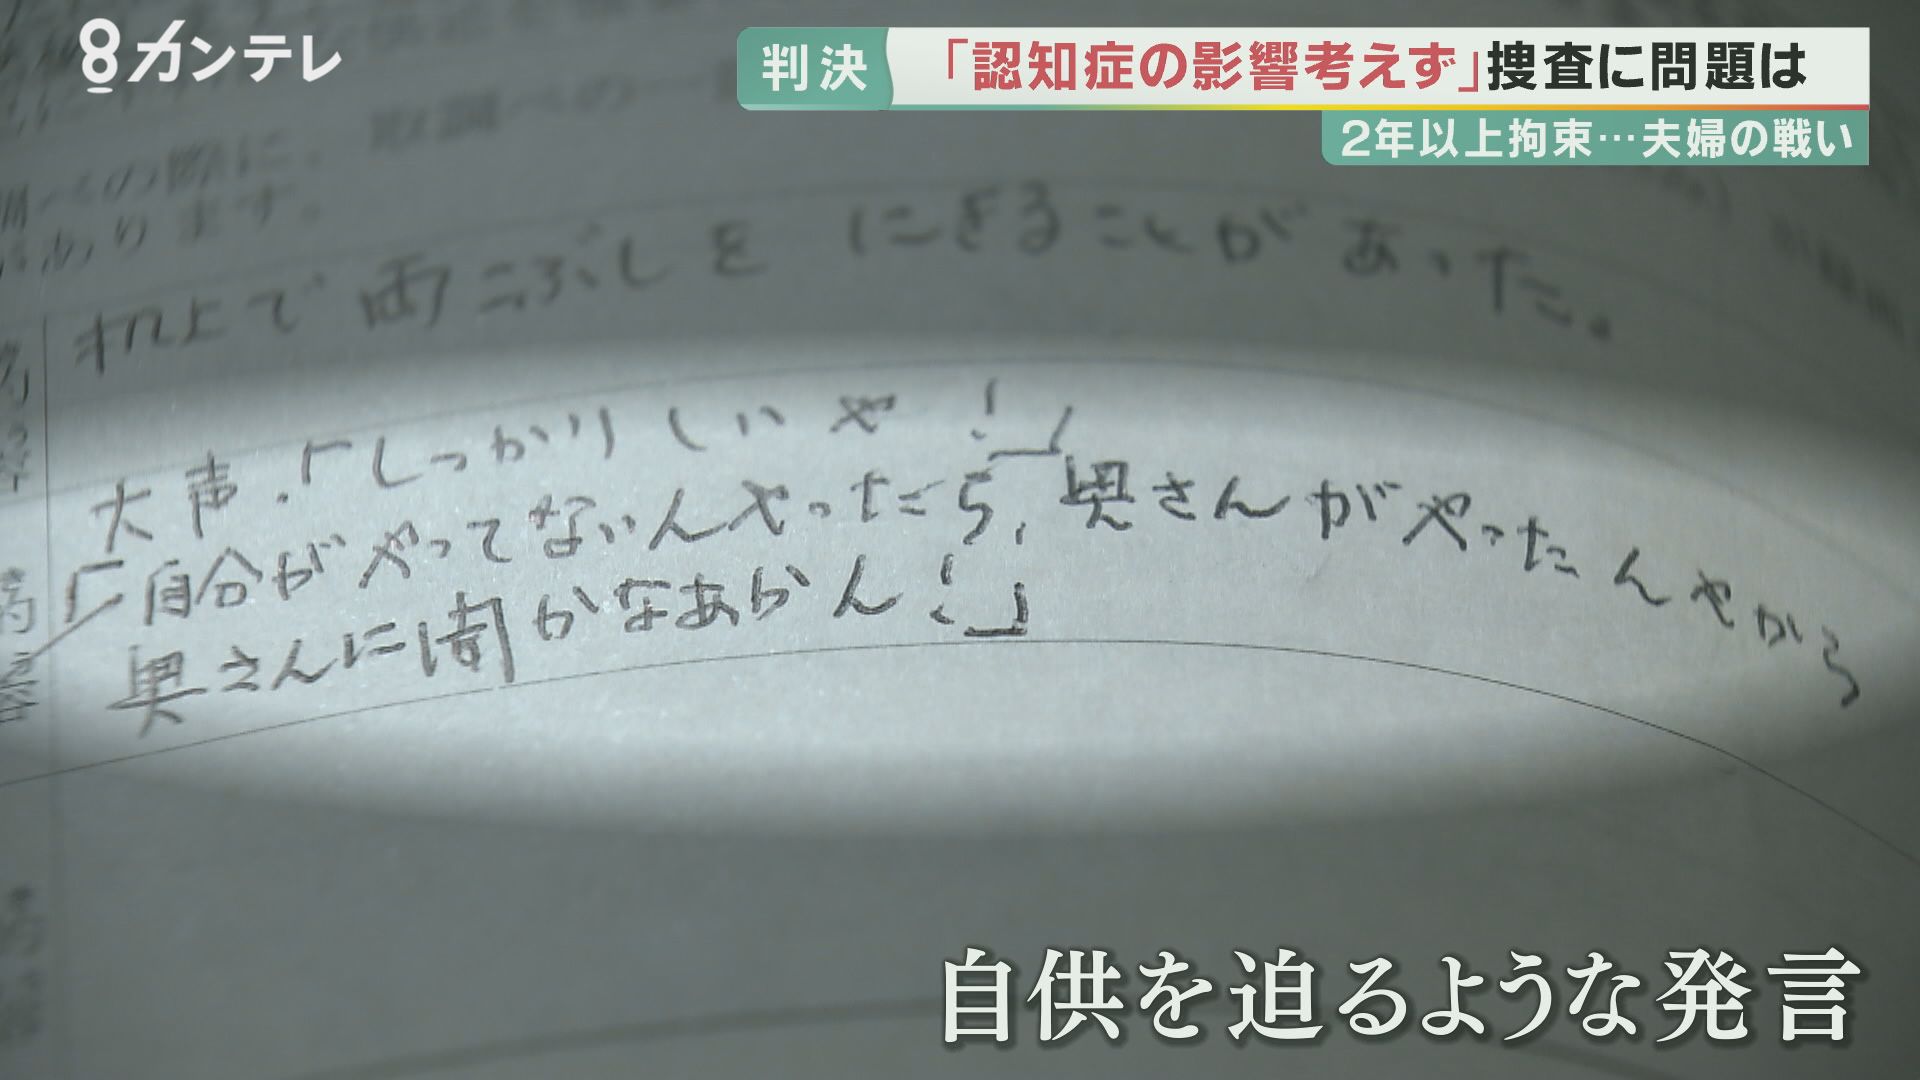 8カンテレ
判決
「認知症の影響考えず」捜査に問題は
2年以上拘束…夫婦の戦い
の際に、取調への
あります。
机上で両こぶしを にぎることがあった。
大声.「しっかりしいや!」
「自分がやってないんやったら、奥さんがやったんやから
奥さんに聞かなあかん!」
自供を迫るような発言